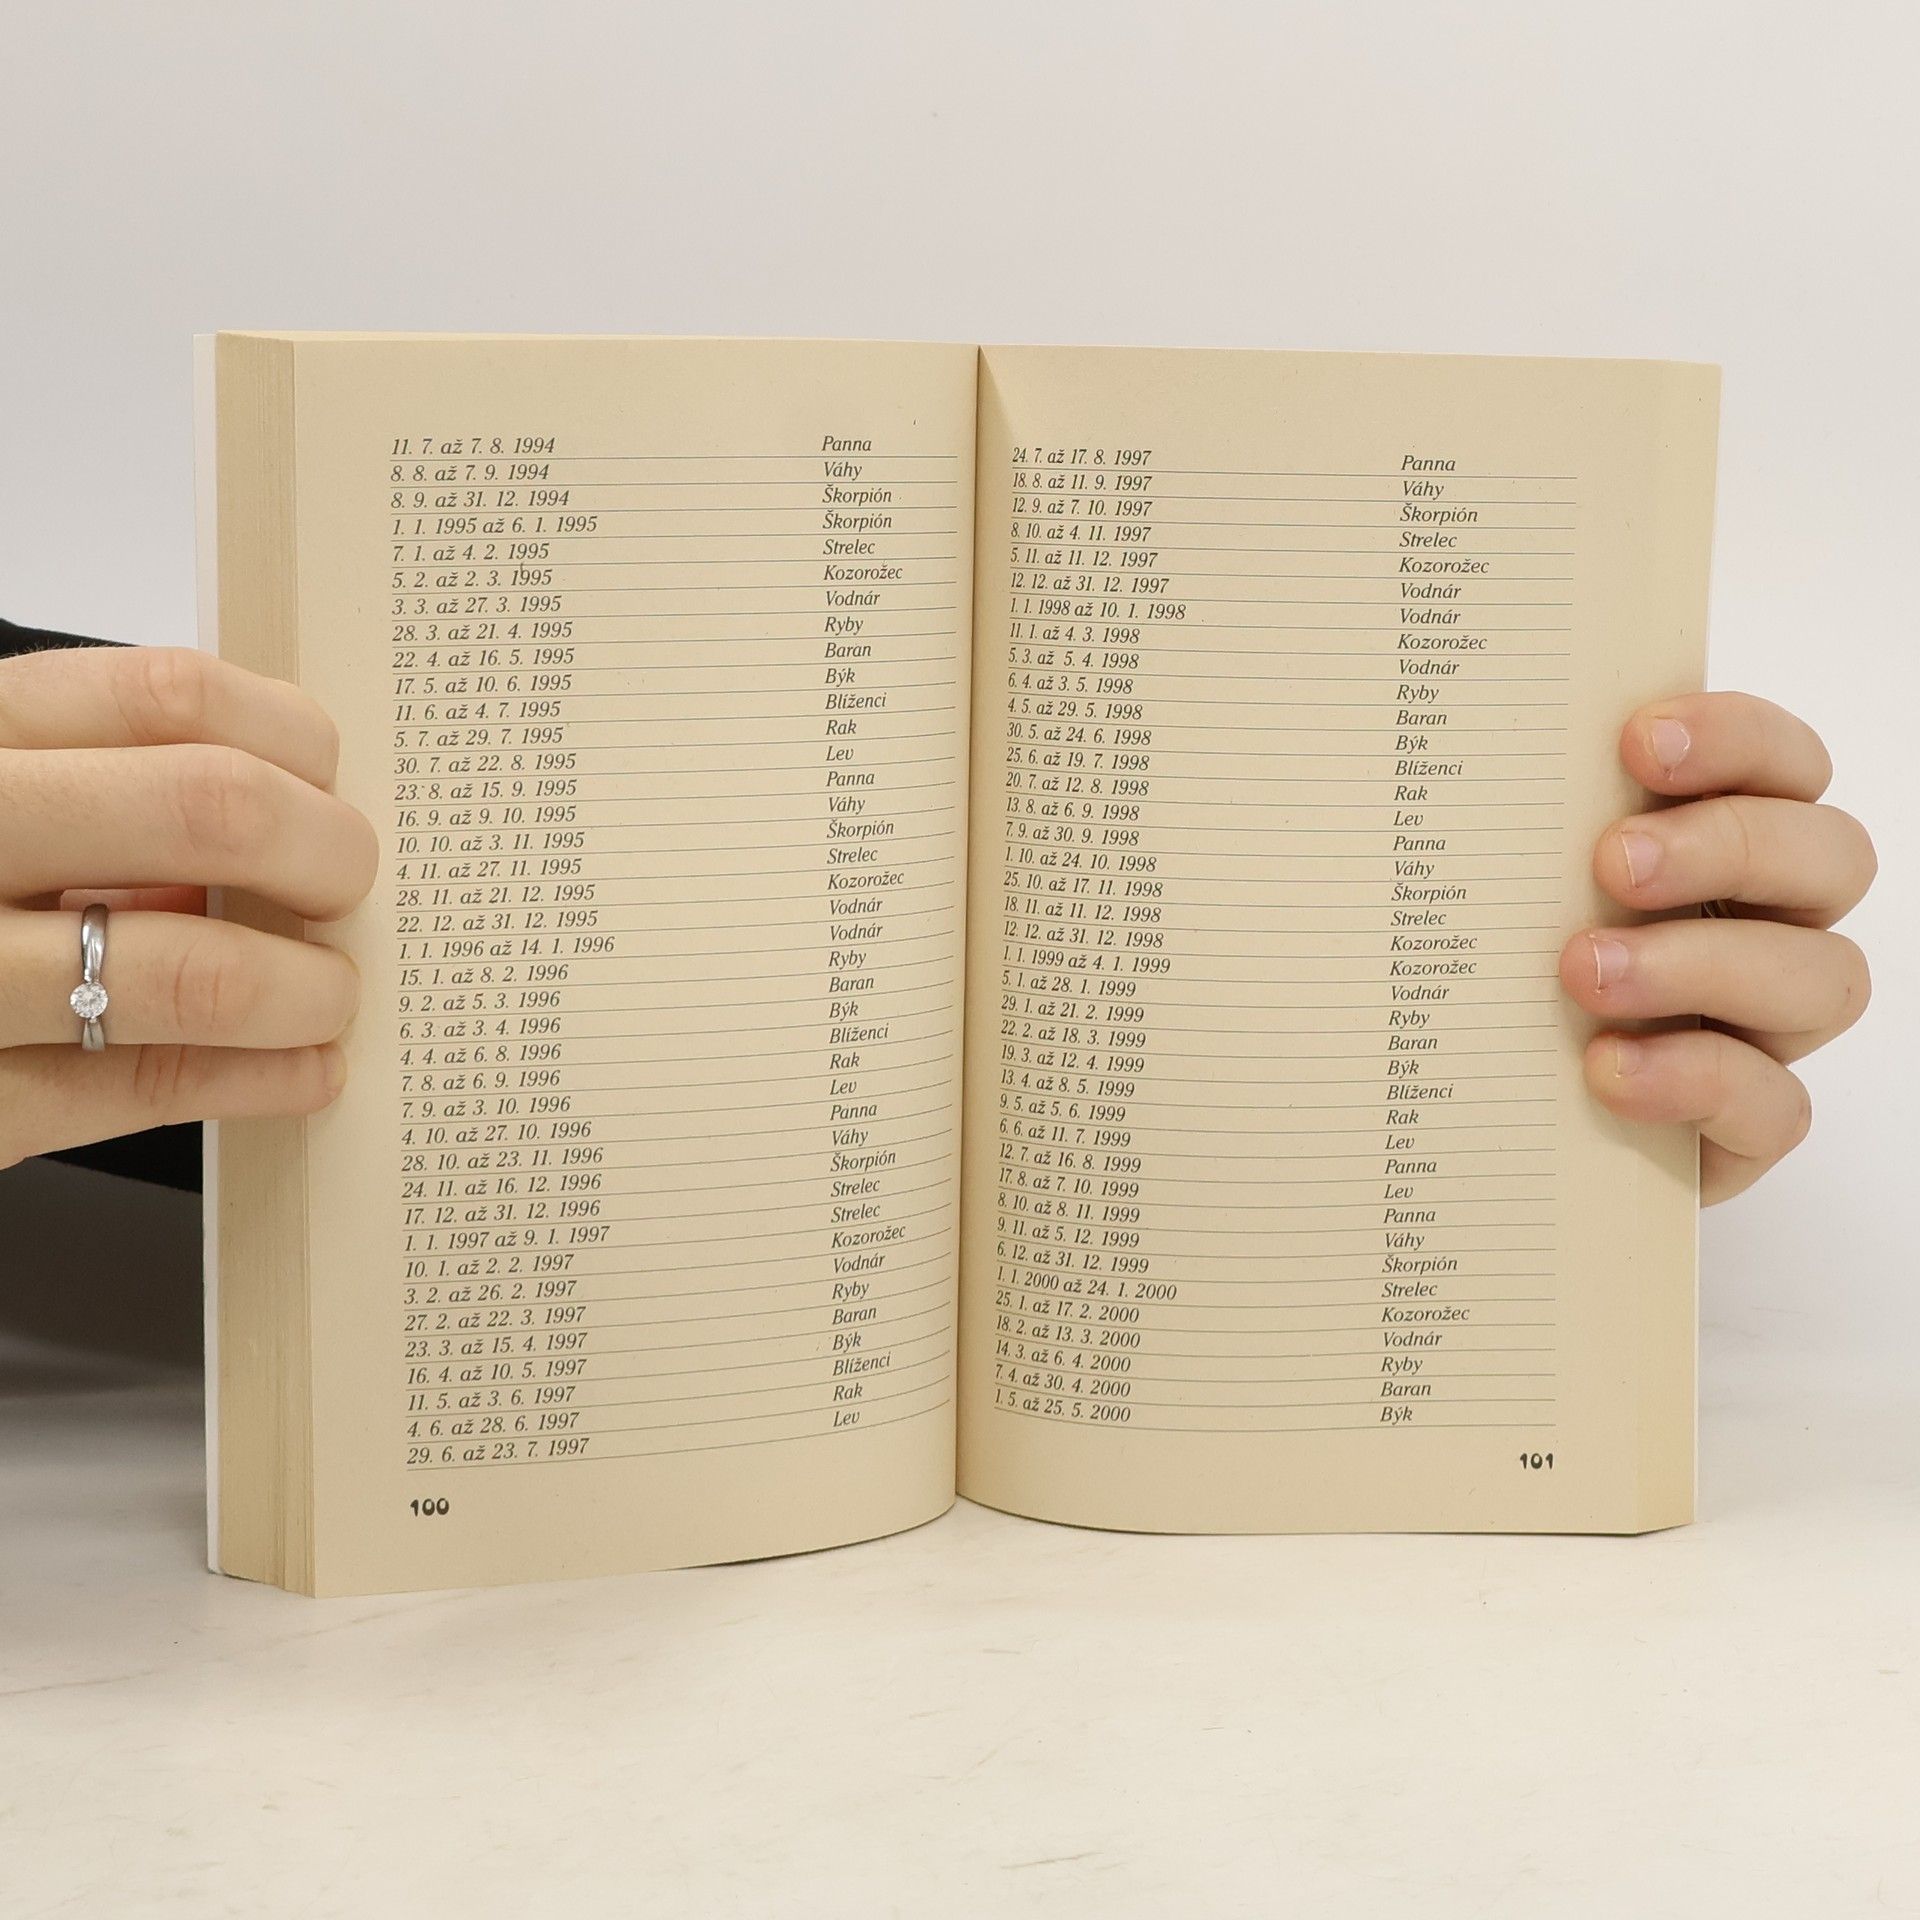 11. 7. až 7. 8. 1994 Panna
8. 8. až 7. 9. 1994 Váhy
8. 9. až 31. 12. 1994 Škorpión
1. 1. 1995 až 6. 1. 1995 Škorpión
7. 1. až 4. 2. 1995 Strelec
5. 2. až 2. 3. 1995 Kozorožec
3. 3. až 27. 3. 1995 Vodnár
28. 3. až 21. 4. 1995 Ryby
22. 4. až 16. 5. 1995 Baran
17. 5. až 10. 6. 1995 Býk
11. 6. až 4. 7. 1995 Blíženci
5. 7. až 29. 7. 1995 Rak
30. 7. až 22. 8. 1995 Lev
23. 8. až 15. 9. 1995 Panna
16. 9. až 9. 10. 1995 Váhy
10. 10. až 3. 11. 1995 Škorpión
4. 11. až 27. 11. 1995 Strelec
28. 11. až 21. 12. 1995 Kozorožec
22. 12. až 31. 12. 1995 Vodnár
1. 1. 1996 až 14. 1. 1996 Vodnár
15. 1. až 8. 2. 1996 Ryby
9. 2. až 5. 3. 1996 Baran
6. 3. až 3. 4. 1996 Býk
4. 4. až 6. 8. 1996 Blíženci
7. 8. až 6. 9. 1996 Rak
7. 9. až 3. 10. 1996 Lev
4. 10. až 27. 10. 1996 Panna
28. 10. až 23. 11. 1996 Váhy
24. 11. až 16. 12. 1996 Škorpión
17. 12. až 31. 12. 1996 Strelec
1. 1. 1997 až 9. 1. 1997 Strelec
10. 1. až 2. 2. 1997 Kozorožec
3. 2. až 26. 2. 1997 Vodnár
27. 2. až 22. 3. 1997 Ryby
23. 3. až 15. 4. 1997 Baran
16. 4. až 10. 5. 1997 Býk
11. 5. až 3. 6. 1997 Blíženci
4. 6. až 28. 6. 1997 Rak
29. 6. až 23. 7. 1997 Lev
100
24. 7. až 17. 8. 1997 Panna
18. 8. až 11. 9. 1997 Váhy
12. 9. až 7. 10. 1997 Škorpión
8. 10. až 4. 11. 1997 Strelec
5. 11. až 11. 12. 1997 Kozorožec
12. 12. až 31. 12. 1997 Vodnár
1. 1. 1998 až 10. 1. 1998 Vodnár
11. 1. až 4. 3. 1998 Kozorožec
5. 3. až 5. 4. 1998 Vodnár
6. 4. až 3. 5. 1998 Ryby
4. 5. až 29. 5. 1998 Baran
30. 5. až 24. 6. 1998 Býk
25. 6. až 19. 7. 1998 Blíženci
20. 7. až 12. 8. 1998 Rak
13. 8. až 6. 9. 1998 Lev
7. 9. až 30. 9. 1998 Panna
1. 10. až 24. 10. 1998 Váhy
25. 10. až 17. 11. 1998 Škorpión
18. 11. až 11. 12. 1998 Strelec
12. 12. až 31. 12. 1998 Kozorožec
1. 1. 1999 až 4. 1. 1999 Kozorožec
5. 1. až 28. 1. 1999 Vodnár
29. 1. až 21. 2. 1999 Ryby
22. 2. až 18. 3. 1999 Baran
19. 3. až 12. 4. 1999 Býk
13. 4. až 8. 5. 1999 Blíženci
9. 5. až 5. 6. 1999 Rak
6. 6. až 11. 7. 1999 Lev
12. 7. až 16. 8. 1999 Panna
17. 8. až 7. 10. 1999 Lev
8. 10. až 8. 11. 1999 Panna
9. 11. až 5. 12. 1999 Váhy
6. 12. až 31. 12. 1999 Škorpión
1. 1. 2000 až 24. 1. 2000 Strelec
25. 1. až 17. 2. 2000 Kozorožec
18. 2. až 13. 3. 2000 Vodnár
14. 3. až 6. 4. 2000 Ryby
7. 4. až 30. 4. 2000 Baran
1. 5. až 25. 5. 2000 Býk
101